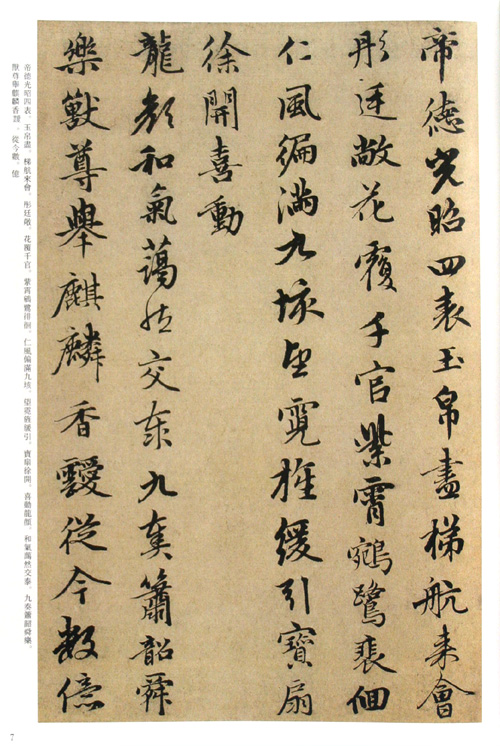 帝德光昭四表玉帛盡梯航来會
彤廷敞花覆千官紫霄鵷鷺裴佪
仁風徧滿九垓望霓旌緩引寶扇
徐開喜動
龍顏和氣藹然交泰九奏簫韶舜
樂獸尊舉麒麟香靉從今數億
帝德光昭四表、玉帛盡、梯航來會、彤廷敞、花覆千官、紫霄鵷鷺徘徊、仁風偏滿九垓、望霓旌緩引、寶扇徐開、喜動龍顏、和氣藹然交泰、九奏簫韶舜樂、
獸尊舉麒麟香靉、從今數、億
7